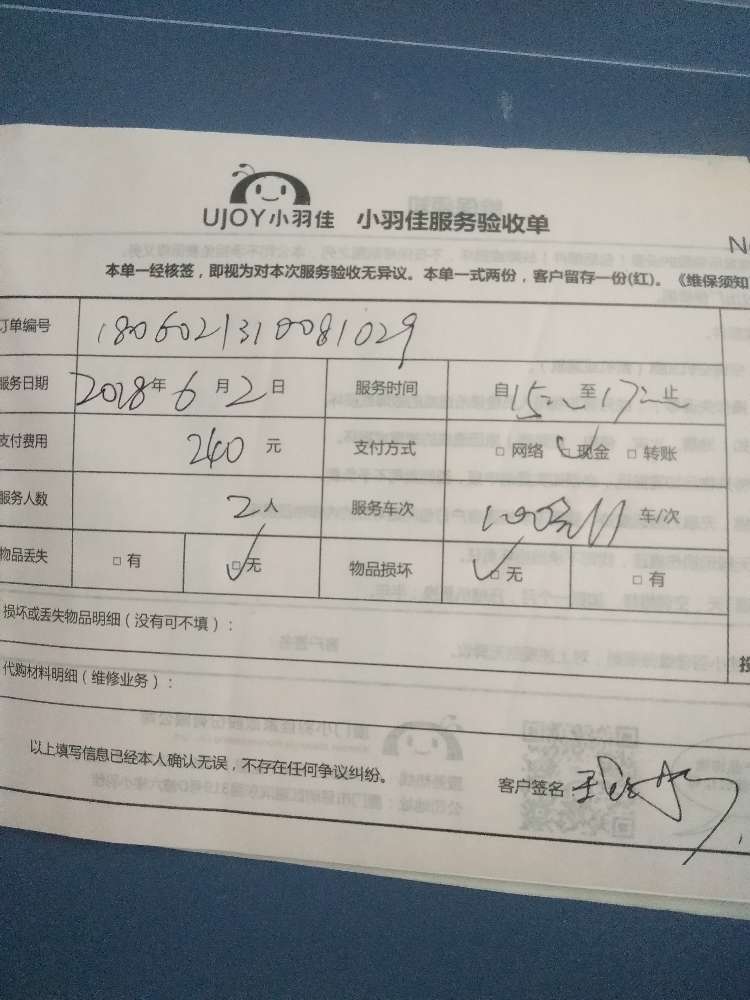 UJOY小羽佳 小羽佳服务验收单
N
本单一经核签，即视为对本次服务验收无异议。本单一式两份，客户留存一份(红)。《维保须知
订单编号 1806021310081029
服务日期 2018年6月2日 服务时间 自15:至17:止
支付费用 240元 支付方式 □网络 □现金 □转账
服务人数 2人 服务车次 车/次
物品丢失 □有 □无 物品损坏 □无 □有
损坏或丢失物品明细（没有可不填）：
代购材料明细（维修业务）：
以上填写信息已经本人确认无误，不存在任何争议纠纷。
客户签名